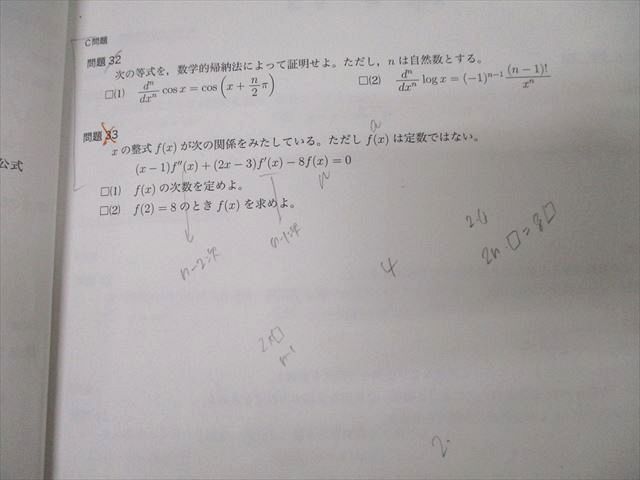 C問題
問題32
次の等式を,数学的帰納法によって証明せよ。ただし,nは自然数とする。
□(1) d^n/dx^n cos x = cos(x + n/2 π) □(2) d^n/dx^n log x = (-1)^{n-1} (n-1)!/x^n
問題33
xの整式 f(x) が次の関係をみたしている。ただし f(x) は定数ではない。
(x-1)f''(x)+(2x-3)f'(x)-8f(x)=0
□(1) f(x) の次数を定めよ。
□(2) f(2)=8 のとき f(x) を求めよ。
公式
n
n-2次
n-1次
4
2n・□=8□
2n□
n-1
2